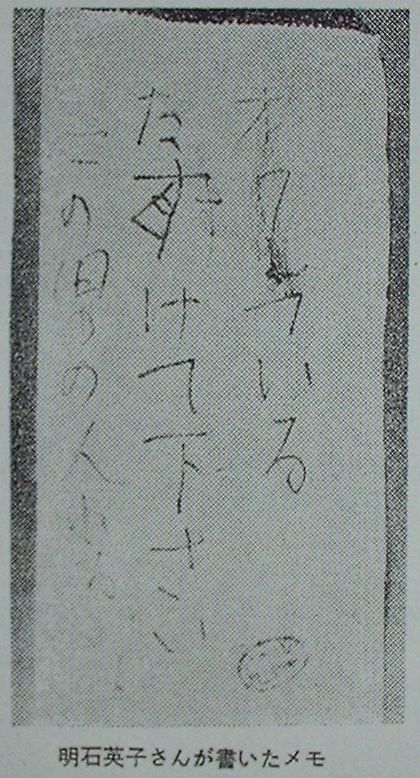 オワている
たすけて下さい
この男の人
明石英子さんが書いたメモ